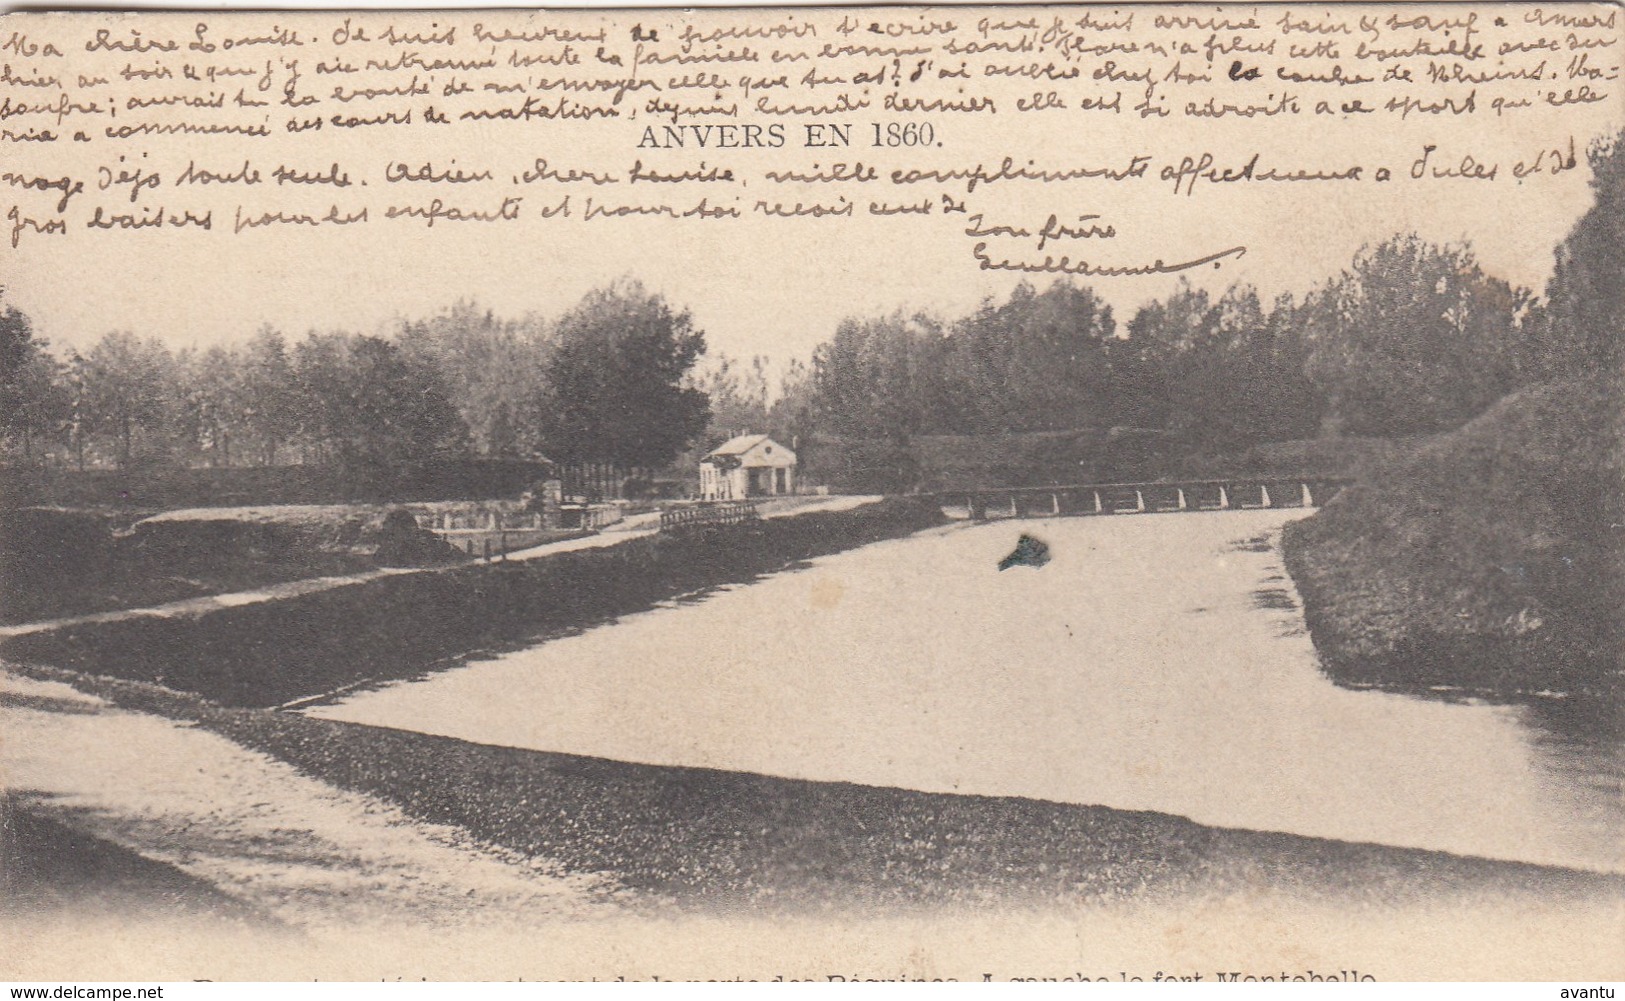 Ma chère Louise. Je suis heureux de pouvoir t'ecrire que je suis arrivé sain & sauf a Anvers
hier au soir & que j'y aie retrouvé toute la famille en bonne santé. Flore n'a plus cette bouteille avec du
soufre; aurais tu la bonté de m'envoyer celle que tu as? J'ai oublié chez toi la coube de Rheins. Ma=
ria a commencé des cours de natation, depuis lundi dernier elle est si adroite a ce sport qu'elle
ANVERS EN 1860.
nage déja toute seule. Adieu, chere Louise, mille compliments affectueux a Jules et de
gros baisers pour les enfants et pour toi recois ceux de
Ton frère
Guillaume.
de la porte des Béguines. A gauche le fort Montebello
avantu